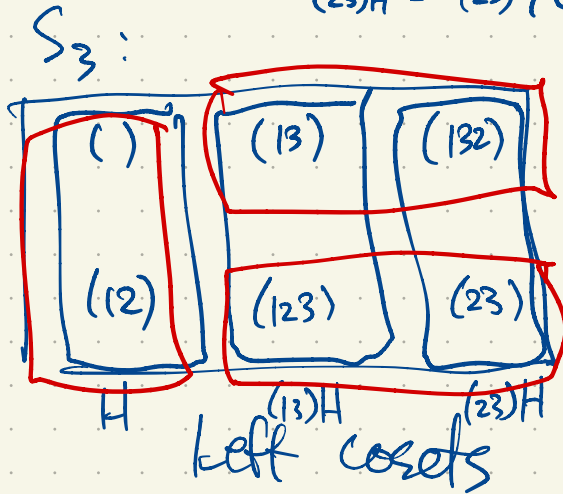 (23)H =
S3:
( ) (13) (132)
(12) (123) (23)
H (13)H (23)H
Left cosets